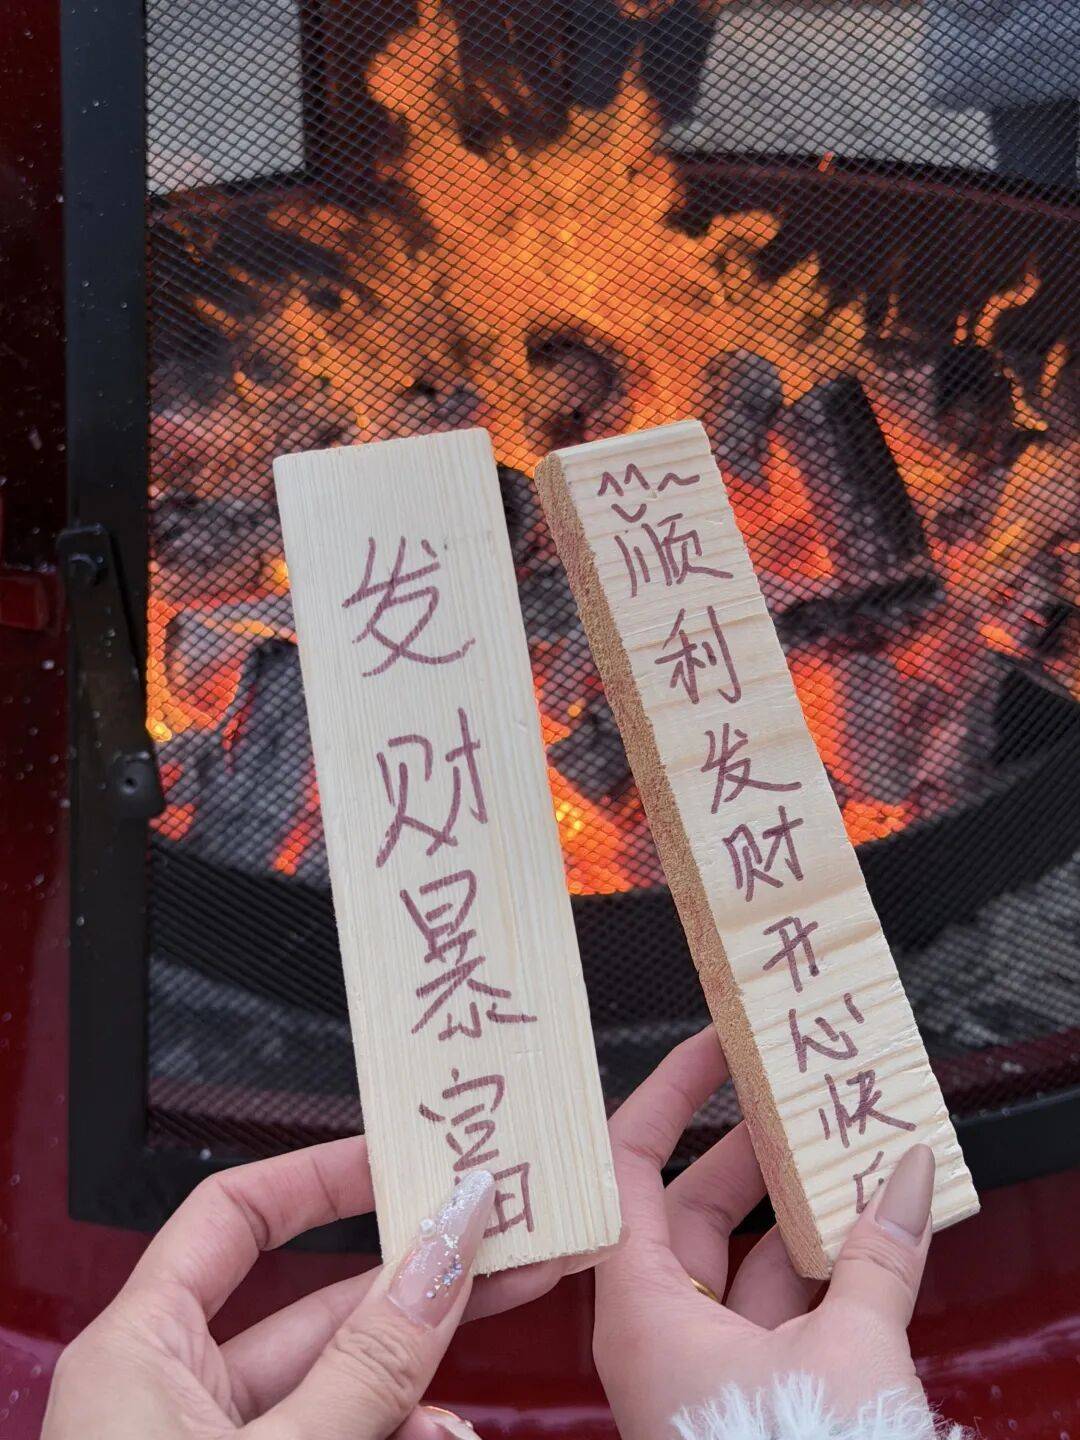 发财暴富
顺利发财开心快